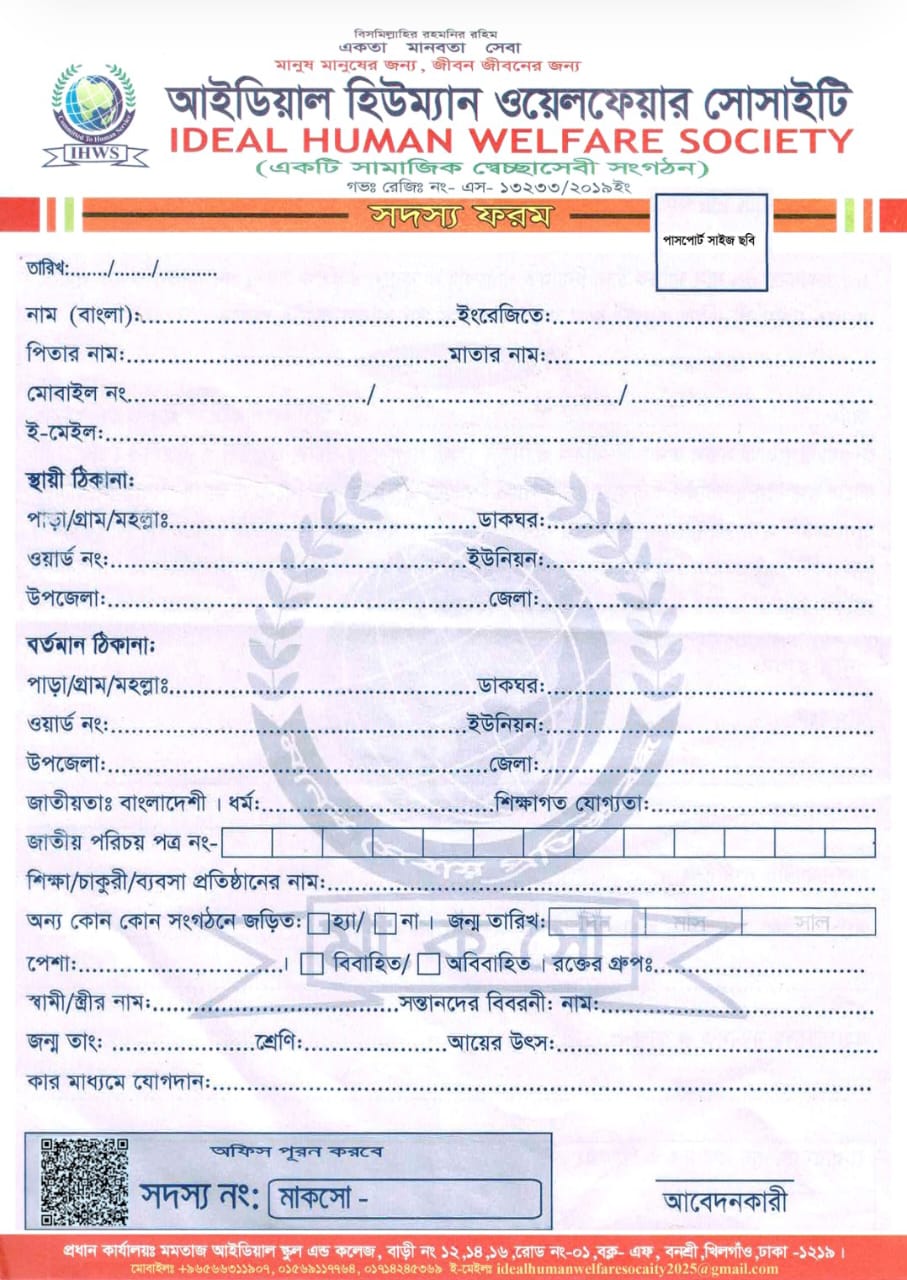 বিসমিল্লাহির রহমনির রহিম
একতা মানবতা সেবা
মানুষ মানুষের জন্য, জীবন জীবনের জন্য
আইডিয়াল হিউম্যান ওয়েলফেয়ার সোসাইটি
IDEAL HUMAN WELFARE SOCIETY
(একটি সামাজিক স্বেচ্ছাসেবী সংগঠন)
গভঃ রেজিঃ নং- এস- ১৩২৩৩/২০১৯ইং
Committed To Human Service
IHWS
সদস্য ফরম
পাসপোর্ট সাইজ ছবি
তারিখ:......./......./............
নাম (বাংলা):...............ইংরেজিতে:...............
পিতার নাম:...............মাতার নাম:...............
মোবাইল নং.............../.............../...............
ই-মেইল:...............
স্থায়ী ঠিকানা:
পাড়া/গ্রাম/মহল্লাঃ...............ডাকঘর:...............
ওয়ার্ড নং:...............ইউনিয়ন:...............
উপজেলা:...............জেলা:...............
বর্তমান ঠিকানা:
পাড়া/গ্রাম/মহল্লাঃ...............ডাকঘর:...............
ওয়ার্ড নং:...............ইউনিয়ন:...............
উপজেলা:...............জেলা:...............
জাতীয়তাঃ বাংলাদেশী । ধর্ম:...............শিক্ষাগত যোগ্যতা:...............
জাতীয় পরিচয় পত্র নং-
শিক্ষা/চাকুরী/ব্যবসা প্রতিষ্ঠানের নাম:...............
অন্য কোন কোন সংগঠনে জড়িত: হ্যা/ না । জন্ম তারিখ: দিন মাস সাল
মা ক সো
পেশা:...............। বিবাহিত/ অবিবাহিত । রক্তের গ্রুপঃ...............
স্বামী/স্ত্রীর নাম:...............সন্তানদের বিবরনী: নাম:...............
জন্ম তাং: ...............শ্রেণি:...............আয়ের উৎস:...............
কার মাধ্যমে যোগদান:...............
অফিস পূরন করবে
সদস্য নং: মাকসো -
আবেদনকারী
প্রধান কার্যালয়ঃ মমতাজ আইডিয়াল স্কুল এন্ড কলেজ, বাড়ী নং ১২,১৪,১৬,রোড নং-০১,বক্ল- এফ, বনশ্রী,খিলগাঁও,ঢাকা -১২১৯ ।
মোবাইলঃ +৯৬৫৬৬৩১১৯০৭, ০১৫৬৯১১৭৭৬৪, ০১৭১৪২৪৫৩৬৯ ই-মেইলঃ idealhumanwelfaresocaity2025@gmail.com